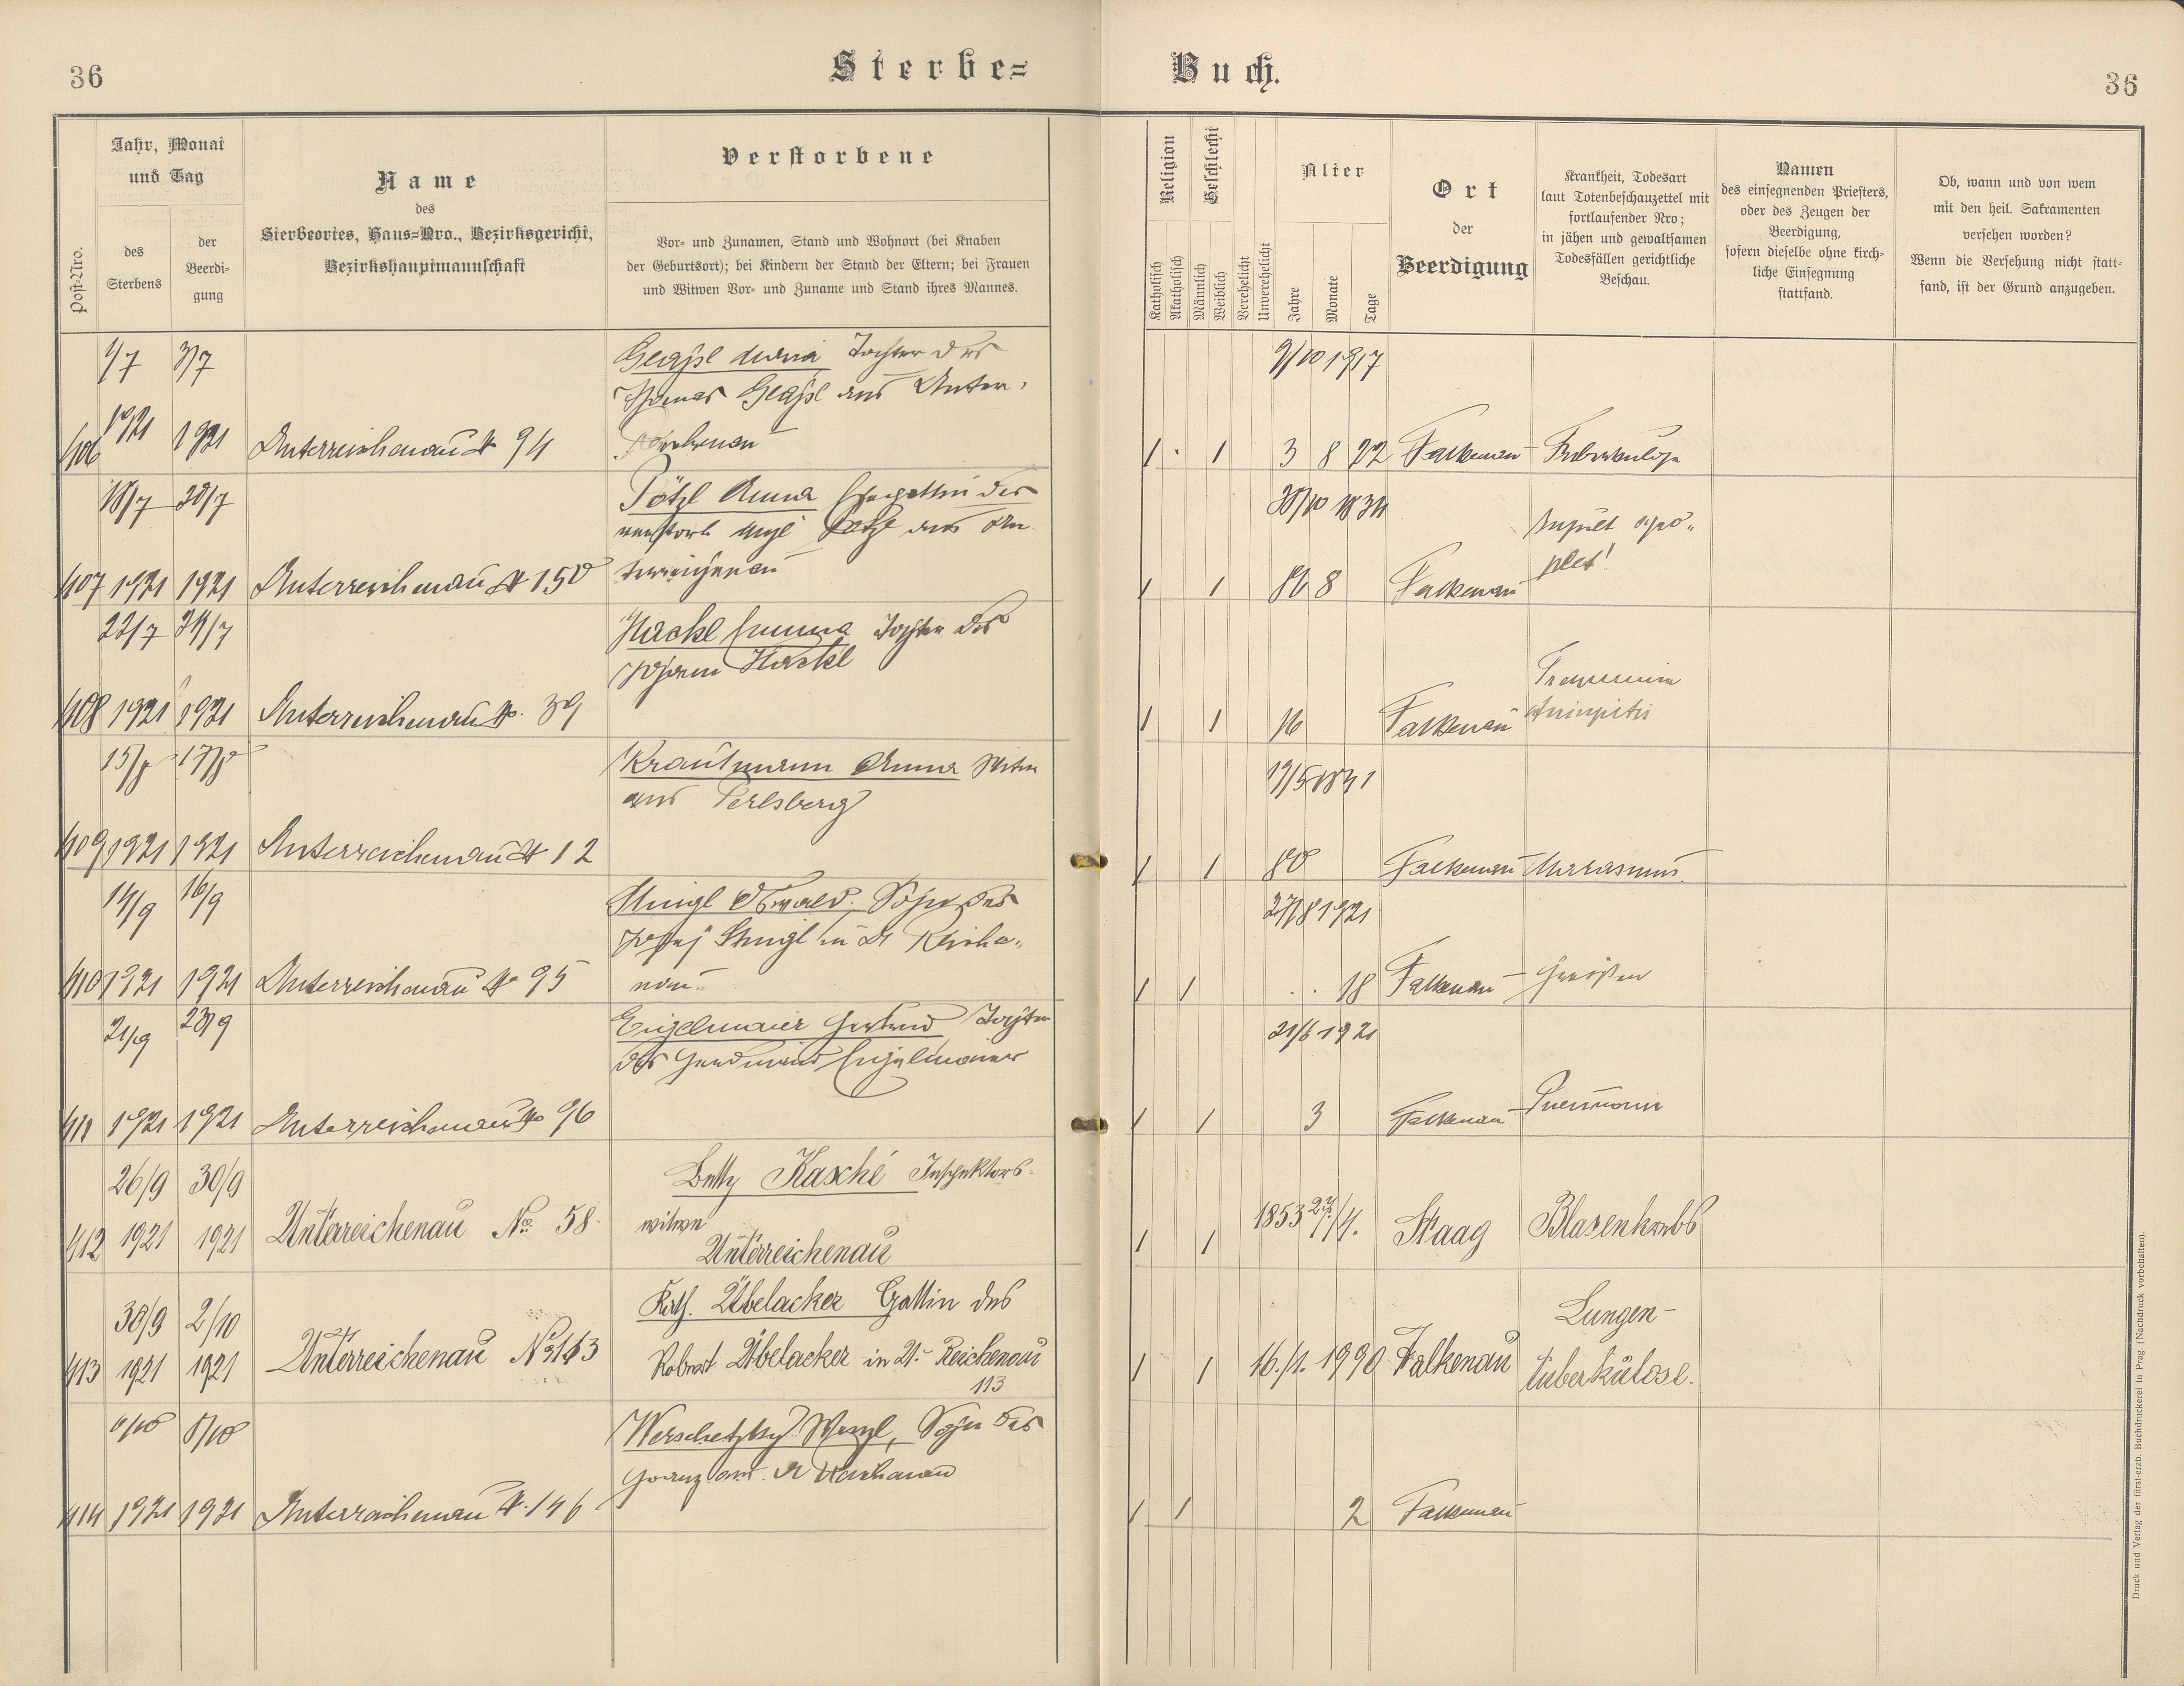 36
Sterbe=
Buch.
36
Post-Nro.
Jahr, Monat
und Tag
des
Sterbens
der
Beerdi-
gung
Name
des
Sterbeortes, Haus=Nro., Bezirksgericht,
Bezirkshauptmannschaft
Verstorbene
Vor= und Zunamen, Stand und Wohnort (bei Knaben
der Geburtsort); bei Kindern der Stand der Eltern; bei Frauen
und Witwen Vor= und Zuname und Stand ihres Mannes.
Religion
Katholisch
Akatholisch
Geschlecht
Männlich
Weiblich
Verehelicht
Unverehelicht
Alter
Jahre
Monate
Tage
Ort
der
Beerdigung
Krankheit, Todesart
laut Totenbeschauzettel mit
fortlaufender Nro;
in jähen und gewaltsamen
Todesfällen gerichtliche
Beschau.
Namen
des einsegnenden Priesters,
oder des Zeugen der
Beerdigung,
sofern dieselbe ohne kirch=
liche Einsegnung
stattfand.
Ob, wann und von wem
mit den heil. Sakramenten
versehen worden?
Wenn die Versehung nicht statt=
fand, ist der Grund anzugeben.
1/7 3/7 Maria Tochter des
Thomas aus Unter-
9/10 1917
406 1921 1921 Unterreichenau № 94 reichenau
1 1 3 8 22 Falkenau Tuberkulose
18/7 20/7 Pötzl Anna Ehegattin des
verstorb. Pötzl aus Un
1834
407 1921 1921 Unterreichenau № 150 terreichenau
1 1 86 8 Falkenau plet!
22/7 24/7 Hackl Emma Tochter des
Johann Hackl
408 1921 1921 Unterreichenau № 39
1 1 16 Falkenau
15/8 17/8 Krautmann Anna Witwe
aus Perlsberg
19/5 1841
409 1921 1921 Unterreichenau № 12
1 1 80 Falkenau Marasmus.
14/9 16/9 Stingl Oswald, Sohn des
Josef Stingl in U. Reiche-
27/8 1921
410 1921 1921 Unterreichenau № 95 nau
1 1 18 Falkenau Fraisen
21/9 23/9 Engelmaier Gertrud Tochter
des Engelmaier
21/6 1921
411 1921 1921 Unterreichenau № 96
1 1 3 Falkenau Pneumonie
26/9 30/9 Betty Kasché Inspektors-
witwe
412 1921 1921 Unterreichenau № 58 Unterreichenau
1 1 1853 27./4. Staag Blasenkrebs
30/9 2/10 Kath. Übelacker Gattin des
413 1921 1921 Unterreichenau № 113 Robert Übelacker in U.- Reichenau
113
1 1 16./1. 1990 Falkenau Lungen-
tuberkulose.
6/10 8/10 Werschetzky Wenzl, Sohn des
Franz aus U. Reichenau
414 1921 1921 Unterreichenau № 146
1 1 2 Falkenau
Druck und Verlag der fürst-erzb. Buchdruckerei in Prag. (Nachdruck vorbehalten).